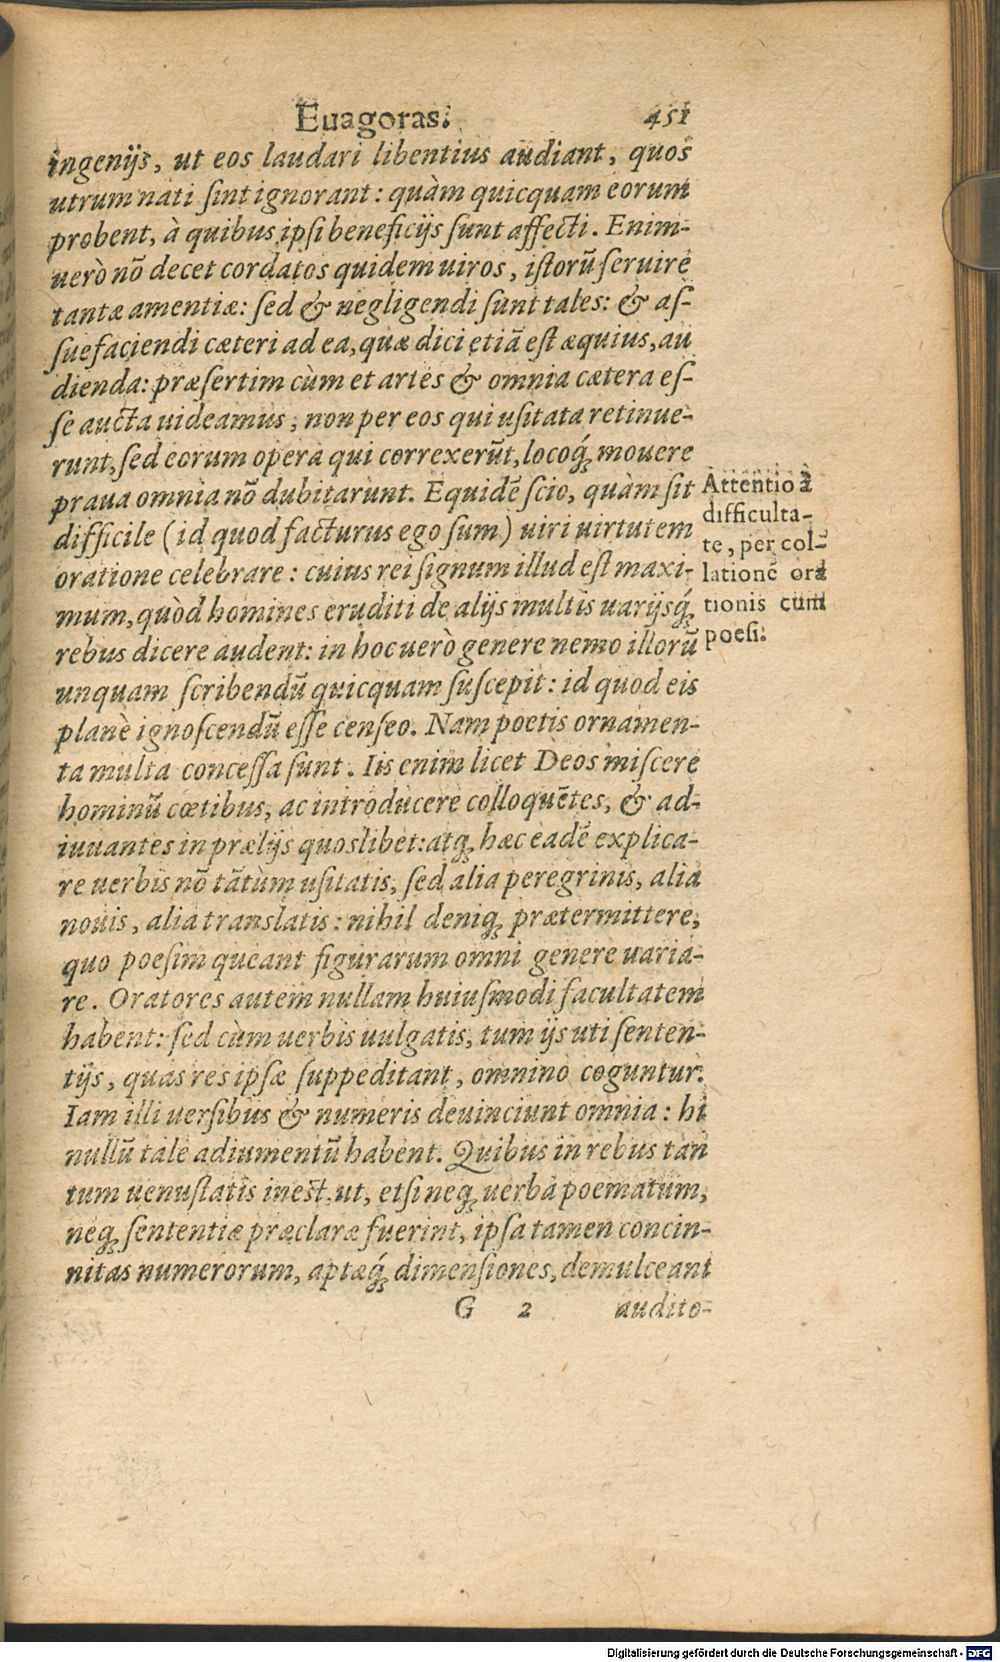 Euagoras. 451
ingenijs, ut eos laudari libentius audiant, quos
utrum nati ſint ignorant: quàm quicquam eorum
probent, à quibus ipſi beneficijs ſunt affecti. Enim-
uerò nō decet cordatos quidem uiros, iſtorū ſeruire
tantæ amentiæ: ſed & negligendi ſunt tales: & aſ-
ſuefaciendi cæteri ad ea, quæ dici etiā eſt æquius, au
dienda: præſertim cùm et artes & omnia cætera eſ-
ſe aucta uideamus, non per eos qui uſitata retinue-
runt, ſed eorum opera qui correxerūt, locoq́ꝫ mouere
praua omnia nō dubitarunt. Equidē ſcio, quàm ſit
difficile (id quod facturus ego ſum) uiri uirtutem
oratione celebrare: cuius rei ſignum illud eſt maxi-
mum, quòd homines eruditi de alijs multis uarijsq́ꝫ
rebus dicere audent: in hoc uerò genere nemo illorū
unquam ſcribendū quicquam ſuſcepit: id quod eis
planè ignoſcendū eſſe cenſeo. Nam poetis ornamen-
ta multa conceſſa ſunt. Iis enim licet Deos miſcere
hominū cœtibus, ac introducere colloquētes, & ad-
iuuantes in prælijs quoslibet: atqꝫ hæc eadē explica-
re uerbis nō tātùm uſitatis, ſed alia peregrinis, alia
nouis, alia translatis: nihil deniqꝫ prætermittere,
quo poeſim queant figurarum omni genere uaria-
re. Oratores autem nullam huiuſmodi facultatem
habent: ſed cùm uerbis uulgatis, tum ijs uti ſenten-
tijs, quas res ipſæ ſuppeditant, omninò coguntur.
Iam illi uerſibus & numeris deuinciunt omnia: hi
nullū tale adiumentū habent. Quibus in rebus tan
tum uenuſtatis ineſt, ut, etſi neqꝫ uerba poematum,
neqꝫ ſententiæ præclaræ fuerint, ipſa tamen concin-
nitas numerorum, aptæq́ꝫ dimenſiones, demulceant
G 2 audito-
Attentio à
difficulta-
te, per col-
lationē ora
tionis cum
poeſi.
Digitalisierung gefördert durch die Deutsche Forschungsgemeinschaft - DFG